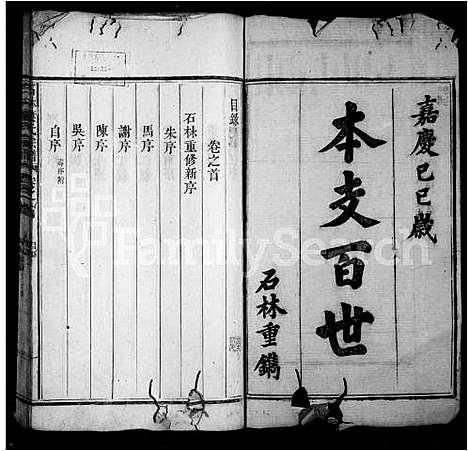 嘉慶己巳歲
本支百世
石林重鐫
目錄
卷之首
石林重修新序
朱序
馬序
謝序
陳序
吳序
自序
壽序附
FamilySearch